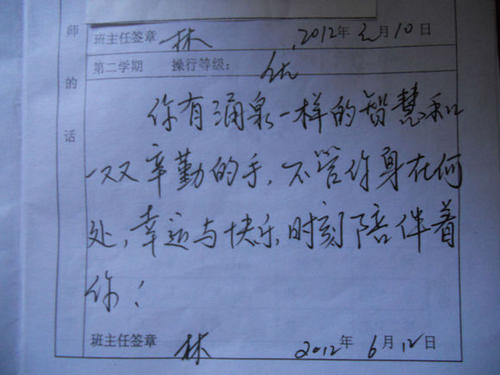 师的话
班主任签章 林 2012年2月10日
第二学期 操行等级: 优
你有涌泉一样的智慧和
一双辛勤的手,不管你身在何
处,幸运与快乐,时刻陪伴着
你!
班主任签章 林 2012年6月12日